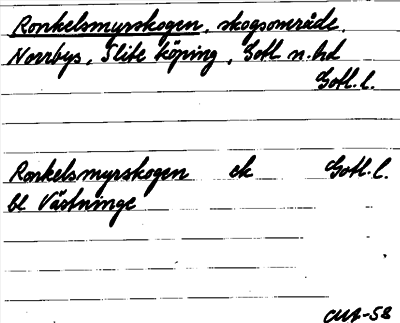 Ronkelsmyrskogen, skogsområde,
Norrbys, Slite köping, Gotl. n. hd
Gotl. l.
Ronkelsmyrskogen ek Gotl. l.
bl Västninge
-58